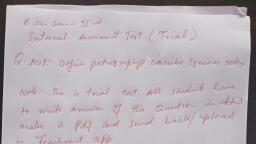 B. Sc. Sem - II nd
Internal Assessment Test (Trial)
Q. No1:- Define petrography Describe Igneous rocks
Note:- This is trial test All students have
to write Answer of this Question in
make a Pdf and send back/upload
Teachment app